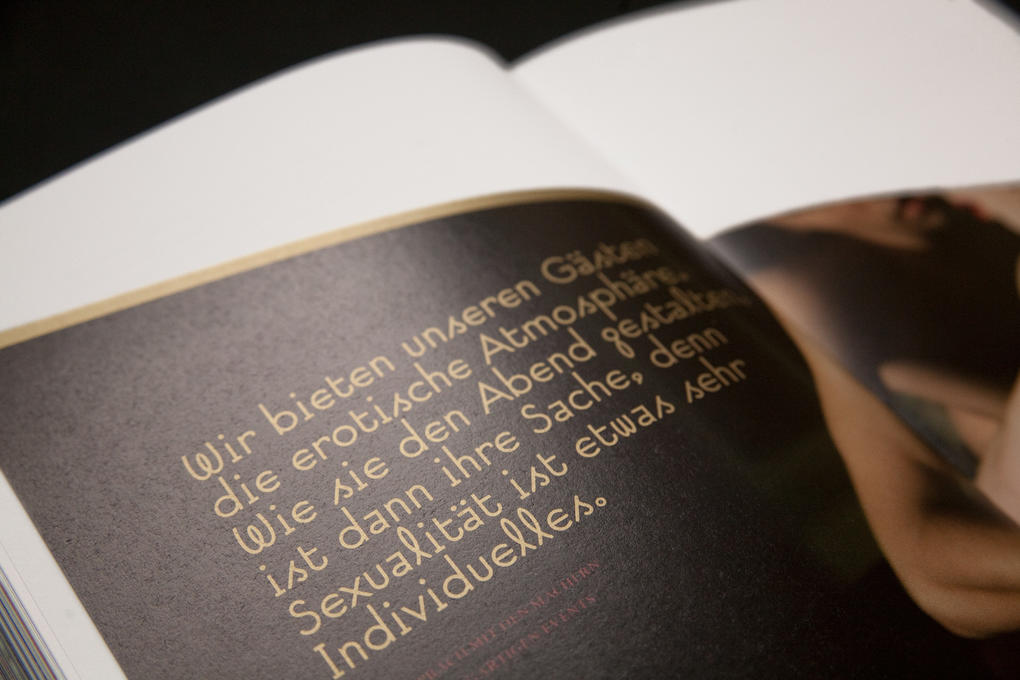 Wir bieten unseren Gästen
die erotische Atmosphäre.
Wie sie den Abend gestalten,
ist dann ihre Sache, denn
Sexualität ist etwas sehr
Individuelles.
MIT DEN MACHERN
EVENTS